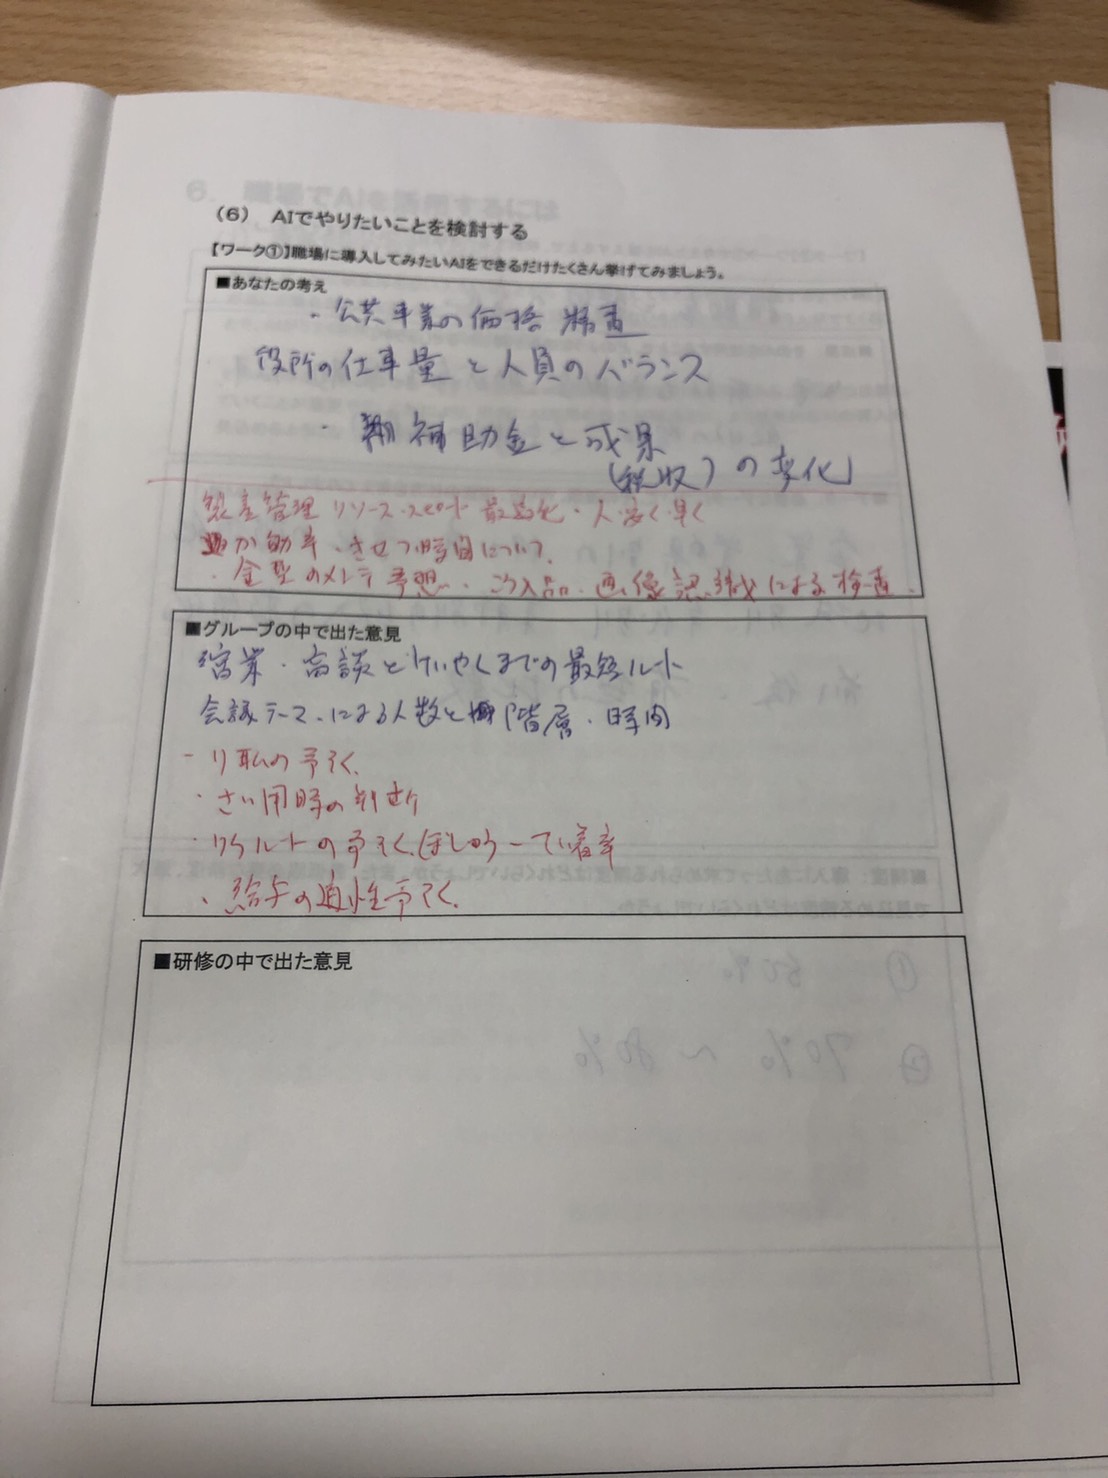 (6) AIでやりたいことを検討する
【ワーク①】職場に導入してみたいAIをできるだけたくさん挙げてみましょう。
■あなたの考え
・公共事業の価格 精査
役所の仕事量と人員のバランス
・補助金と成果
(税収)の変化
製産管理 リソース・スピード 最適化・人・安く・早く
・金型のメンテ予想・ご入品・画像認識による検査
■グループの中で出た意見
営業・商談とけいやくまでの最短ルート
会議テーマによる人数と階層・時間
・り転の予そく
・さい用時の判断
・リクルートの予そく(ぼしゅう〜てい着率
・給与の適性予そく
■研修の中で出た意見